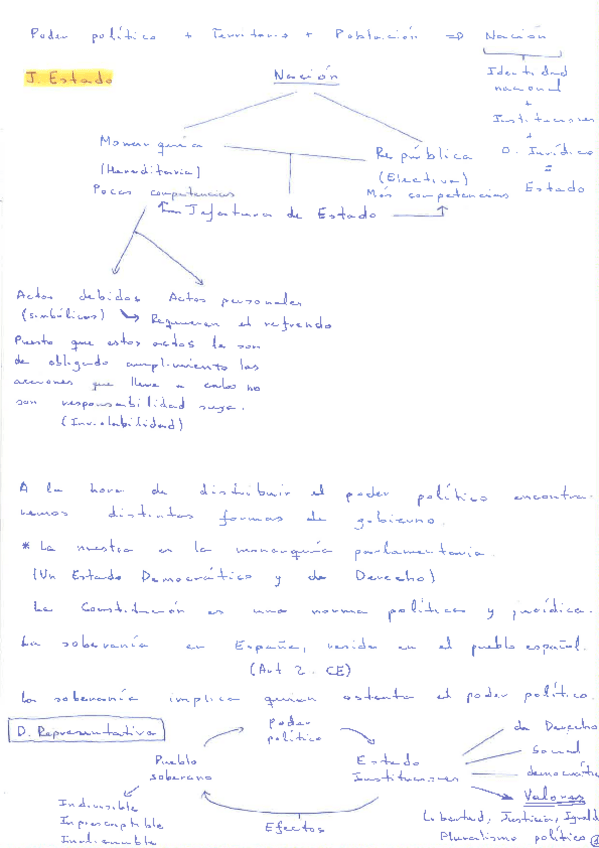 Poder político + Territorio + Población => Nación
J. Estado
Nación
Identidad
nacional
+
Instituciones
+
O. Jurídico
=
Estado
Monarquía
(Hereditaria)
Pocas competencias
República
(Electiva)
Más competencias
Jefatura de Estado
Actos debidos Actos personales
(simbólicos) Requieren el refrendo
Puesto que estos actos le son
de obligado cumplimiento las
acciones que lleve a cabo no
son responsabilidad suya.
(Inviolabilidad)
A la hora de distribuir el poder político encontra-
remos distintas formas de gobierno.
* La nuestra es la monarquía parlamentaria.
(Un Estado Democrático y de Derecho)
La Constitución es una norma política y jurídica.
La soberanía en España, reside en el pueblo español.
(Art 2. CE)
La soberanía implica quien ostenta el poder político.
D. Representativa
Poder
político
Pueblo
soberano
Estado
Instituciones
de Derecho
social
democrático
Valores
Libertad, Justicia, Iguald
Pluralismo político
Indivisible
Imprescriptible
Inalienable
Efectos